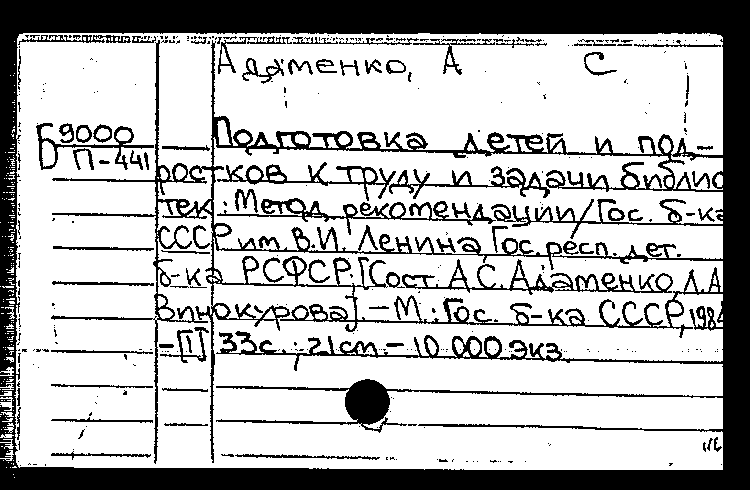 Адаменко, А С
Б 9000
П-441
Подготовка детей и под-
ростков к труду и задачи библио
тек: Метод. рекомендации/Гос. б-ка
СССР им. В.И. Ленина, Гос. респ. дет.
б-ка РСФСР; [Сост. А.С. Адаменко, Л.А.
Винокурова]. - М.: Гос. б-ка СССР, 1984
-[1] 33с.; 21см. - 10 000 экз.